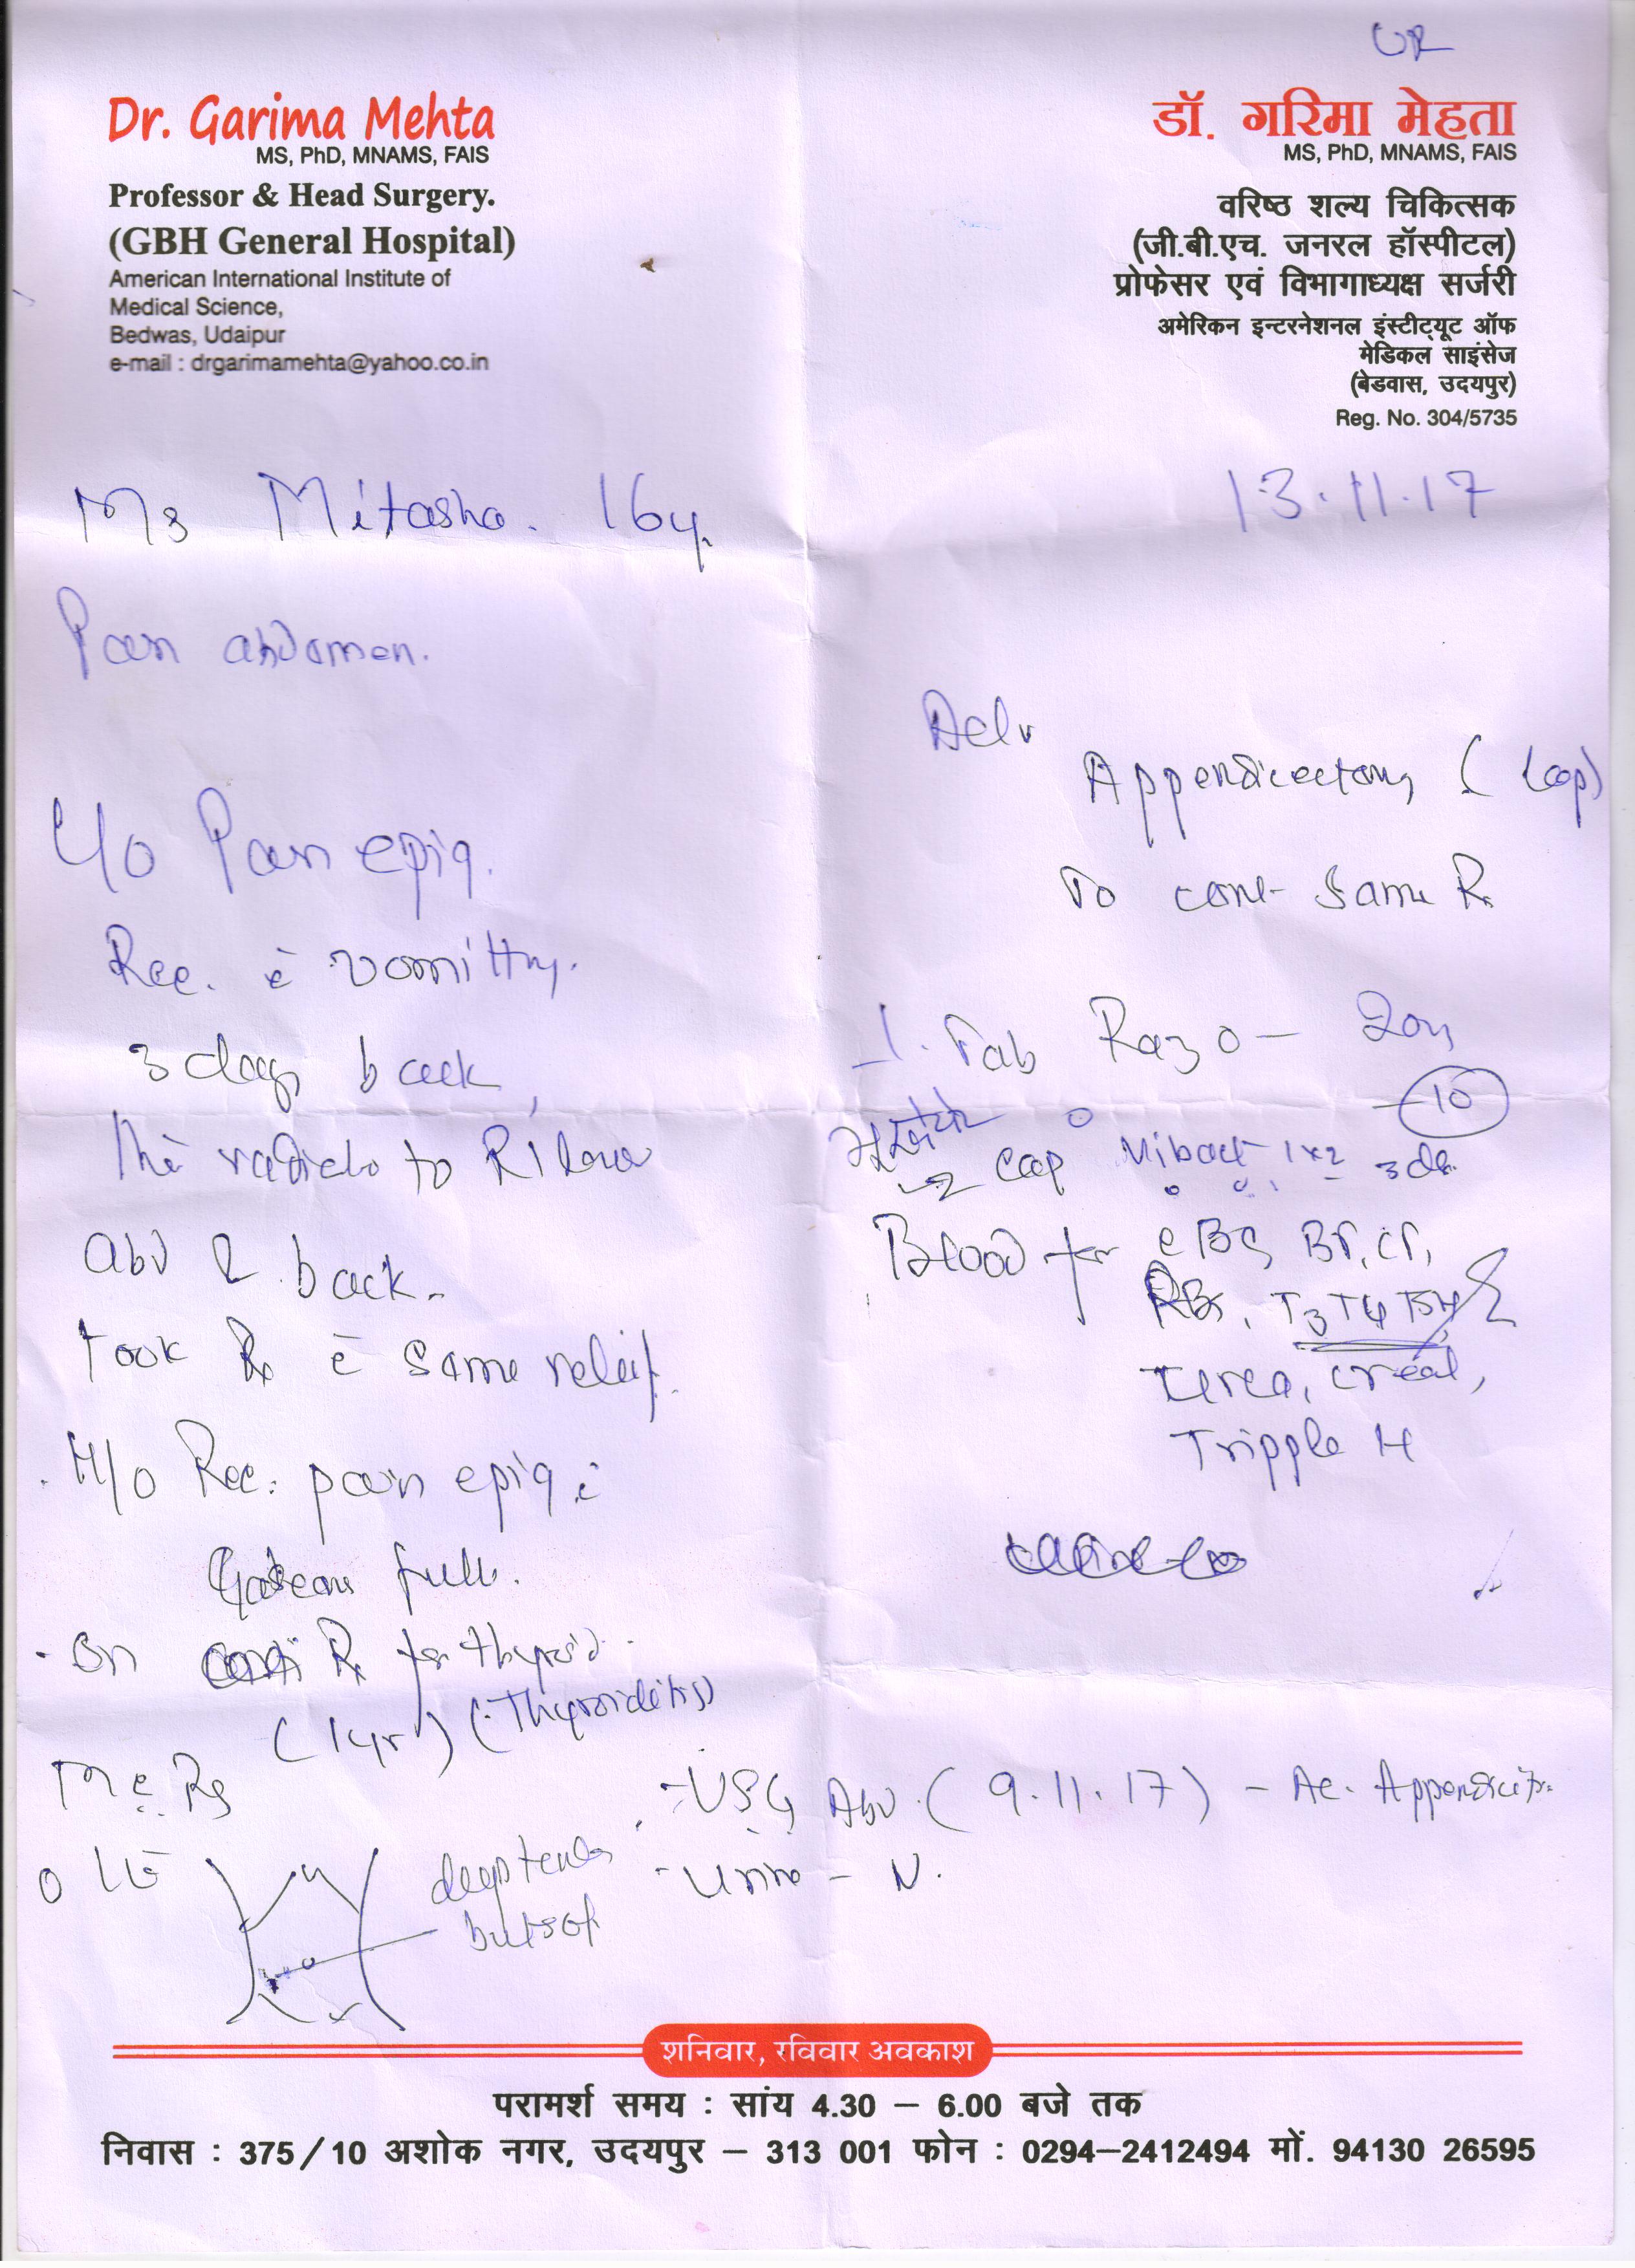 UR
Dr. Garima Mehta
MS, PhD, MNAMS, FAIS
Professor & Head Surgery.
(GBH General Hospital)
American International Institute of
Medical Science,
Bedwas, Udaipur
e-mail : drgarimamehta@yahoo.co.in
डॉ. गरिमा मेहता
MS, PhD, MNAMS, FAIS
वरिष्ठ शल्य चिकित्सक
(जी.बी.एच. जनरल हॉस्पीटल)
प्रोफेसर एवं विभागाध्यक्ष सर्जरी
अमेरिकन इन्टरनेशनल इंस्टीट्यूट ऑफ
मेडिकल साइंसेज
(बेडवास, उदयपुर)
Reg. No. 304/5735
13.11.17
Ms Mitasha. 16y.
Pain abdomen.
H/o Pain epig.
Rec. c̄ vomitting.
3 days back,
radiate to Rt lower
abd & back.
took Rx c̄ same relief.
. H/o Rec. pain epig c̄
full.
. On Rx for thyroid.
(1yr) (Thyroiditis)
O/E
deep tender
but soft
Adv
Appendicectomy (Lap)
To cont same Rx
1. Tab Razo - 20mg
10
Cap Mibact 1x2 3d
Blood for CBC, BT, CT,
RBS, T3 T4 TSH
Urea, creat,
Tripple H
- USG Abd. (9.11.17) - Ac. Appendicitis
- Urine - N.
शनिवार, रविवार अवकाश
परामर्श समय : सांय 4.30 – 6.00 बजे तक
निवास : 375/10 अशोक नगर, उदयपुर – 313 001 फोन : 0294–2412494 मों. 94130 26595